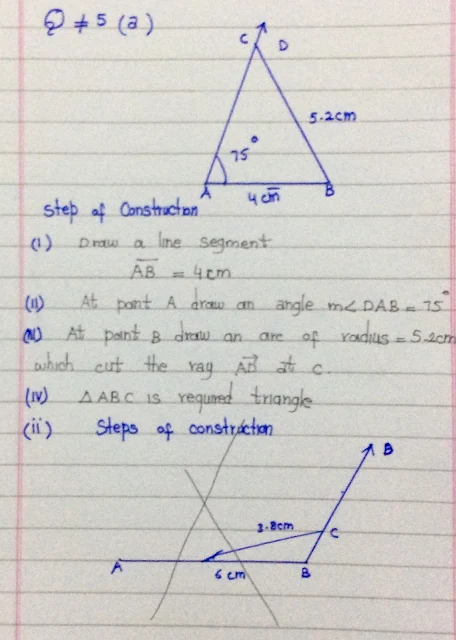 Q ≠ 5 (a)
C D
5.2cm
75°
A 4 cm B
Step of Construction
(I) Draw a line segment
AB = 4cm
(II) At point A draw an angle m∠DAB = 75°
(III) At point B draw an arc of radius = 5.2cm
which cut the ray AD at C.
(IV) △ABC is required triangle
(ii) Steps of construction
B
3.8cm C
A 6 cm B